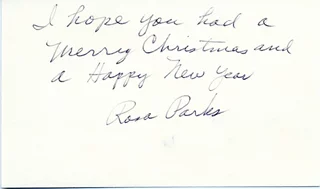 I hope you had a
Merry Christmas and
a Happy New Year
Rosa Parks